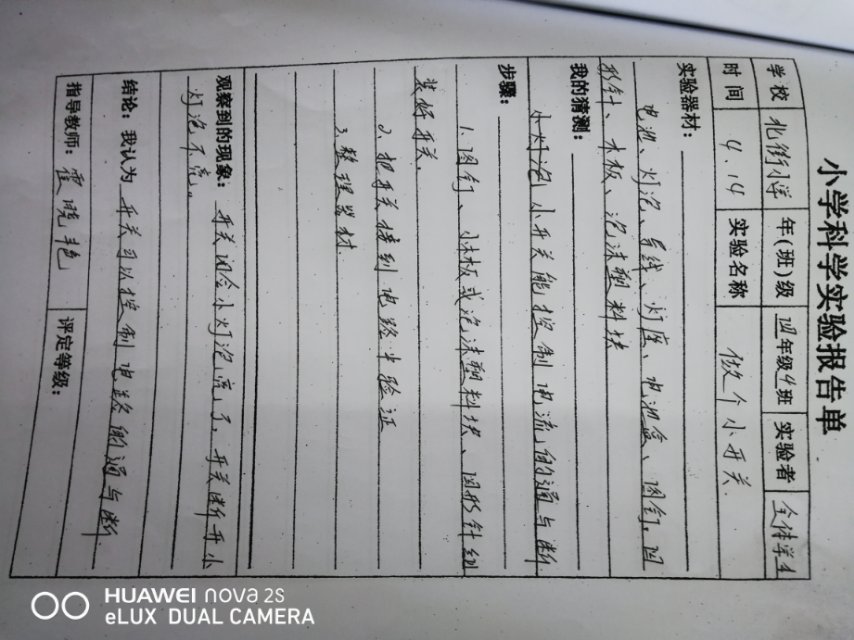 小学科学实验报告单
学校 北街小学 年(班)级 四年级4班 实验者 全体学生
时间 4.14 实验名称 做个小开关
实验器材:
电池、灯泡、导线、灯座、电池盒、图钉、回
形针、木板、泡沫塑料块
我的猜测:
小灯泡小开关能控制电流的通与断
步骤:
1.图钉、小木板或泡沫塑料块、回形针组
装好开关。
2.把开关接到电路中验证
3.整理器材.
观察到的现象:开关闭合小灯泡亮了。开关断开小
灯泡不亮。
结论:我认为 开关可以控制电路的通与断.
指导教师:霍晓艳 评定等级:
HUAWEI nova 2S
eLUX DUAL CAMERA